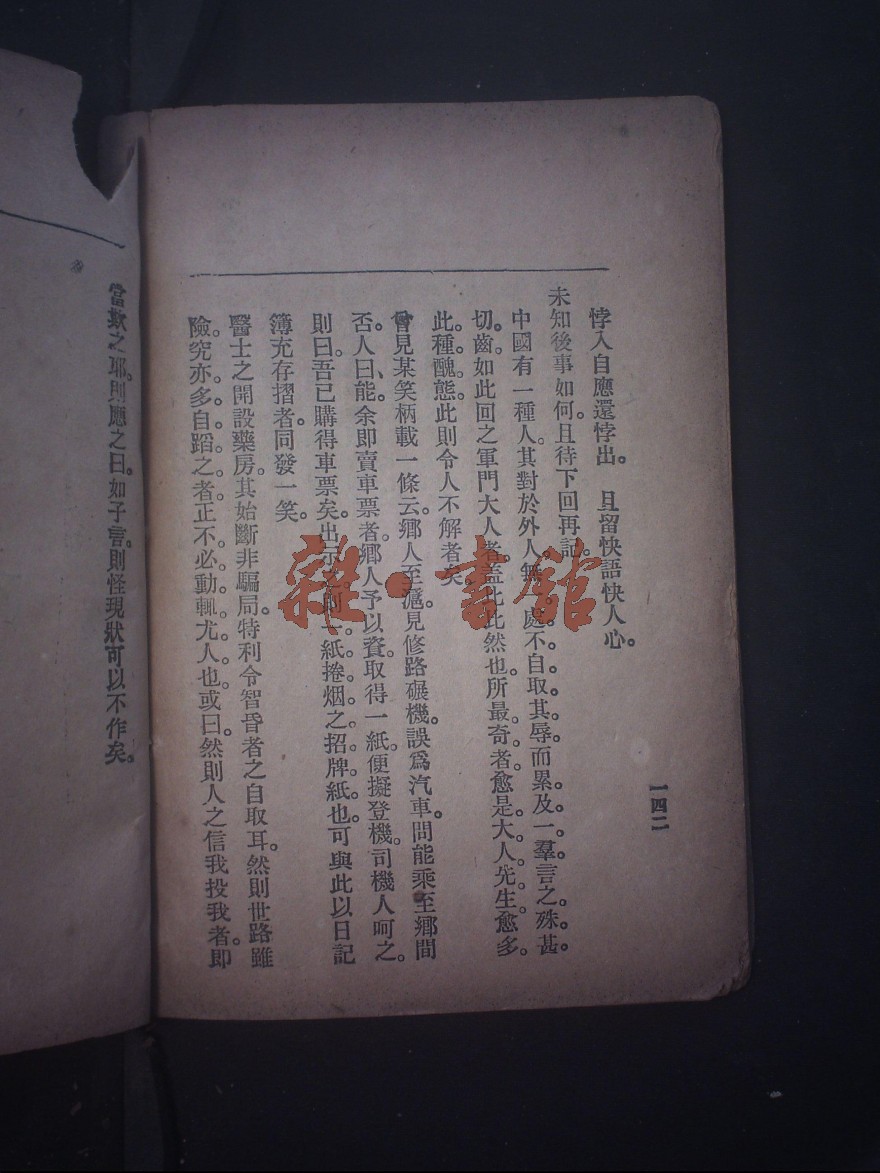 悖入自應還悖出。　且留快語快人心。
未知後事如何。且待下回再記。
中國有一種人。其對於外人。無處不自取其辱。而累及一羣。言之殊甚。
切齒。如此回之軍門大人者。蓋比比然也。所最奇者。愈是大人先生。愈多。
此種醜態。此則令人不解者矣。
曾見某笑柄載一條云。鄉人至滬。見修路碾機。誤爲汽車。問能乘至鄉間
否。人曰、能。余即賣車票者。鄉人予以資。取得一紙。便擬登機。司機人呵之。
則曰。吾已購得車票矣。出示之。則一紙捲烟之招牌紙也。可與此以日記
簿充存摺者。同發一笑。
醫士之開設藥房。其始斷非騙局。特利令智昏者之自取耳。然則世路雖
險。究亦多自蹈之者。正不必動輒尤人也。或曰。然則人之信我投我者。即
當欺之耶。則應之曰。如子言。則怪現狀可以不作矣。
一四二
雜·書館